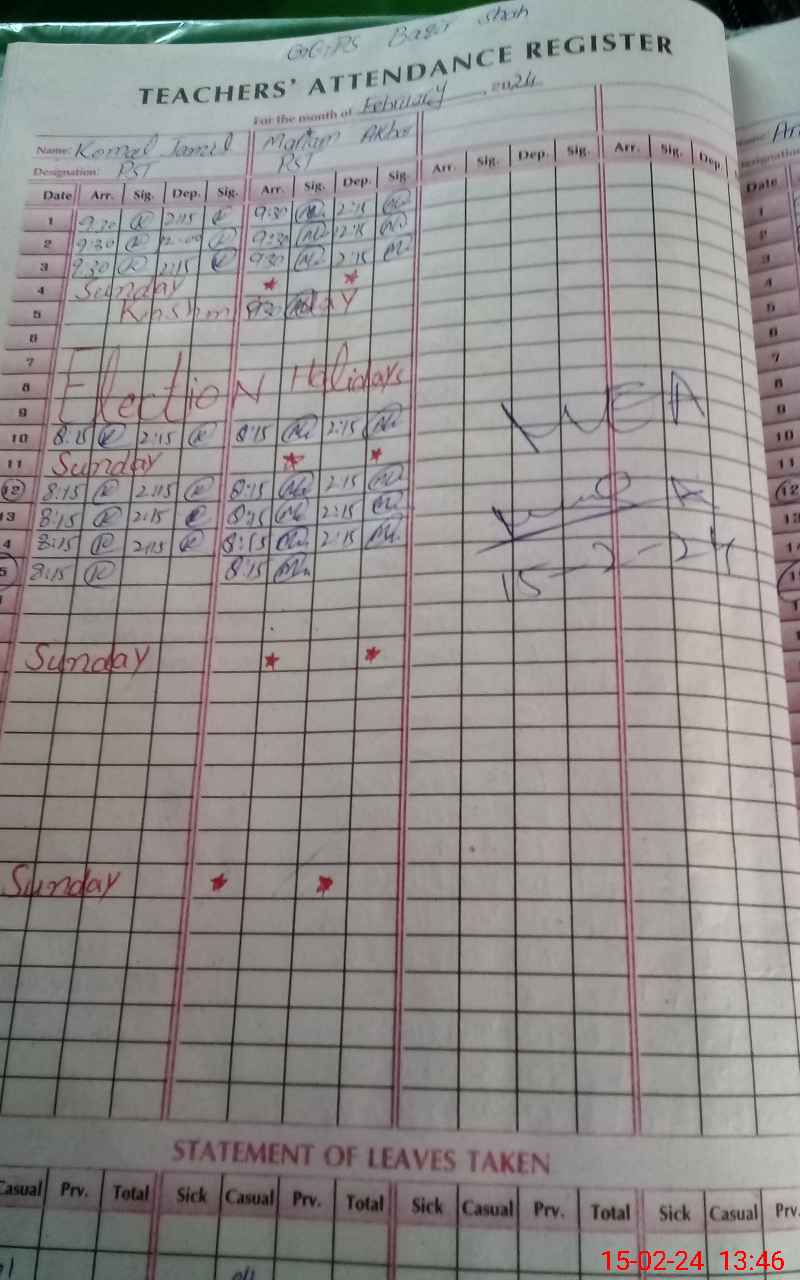 GGPS Baqir Shah
TEACHERS' ATTENDANCE REGISTER
For the month of February, 2024
Name: Komal Jamil Mariam Akhtar
Designation: PST PST
Date Arr. Sig. Dep. Sig. Arr. Sig. Dep. Sig. Arr. Sig. Dep. Sig. Arr. Sig. Dep
1 9:30 2:15 9:30 2:15
2 9:30 12:00 9:30 12:15
3 9:30 2:15 9:30 2:15
4 Sunday * *
5 Day
6
7
8 Election Holidays
9
10 8:15 2:15 8:15 2:15
11 Sunday * *
12 8:15 2:15 8:15 2:15
13 8:15 2:15 8:15 2:15
4 8:15 2:15 8:15 2:15
5 8:15 8:15
15-2-24
Sunday * *
Sunday * *
STATEMENT OF LEAVES TAKEN
Casual Prv. Total Sick Casual Prv. Total Sick Casual Prv. Total Sick Casual Prv.
Date
1
2
3
4
5
6
7
8
9
10
11
12
13
15-02-24 13:46